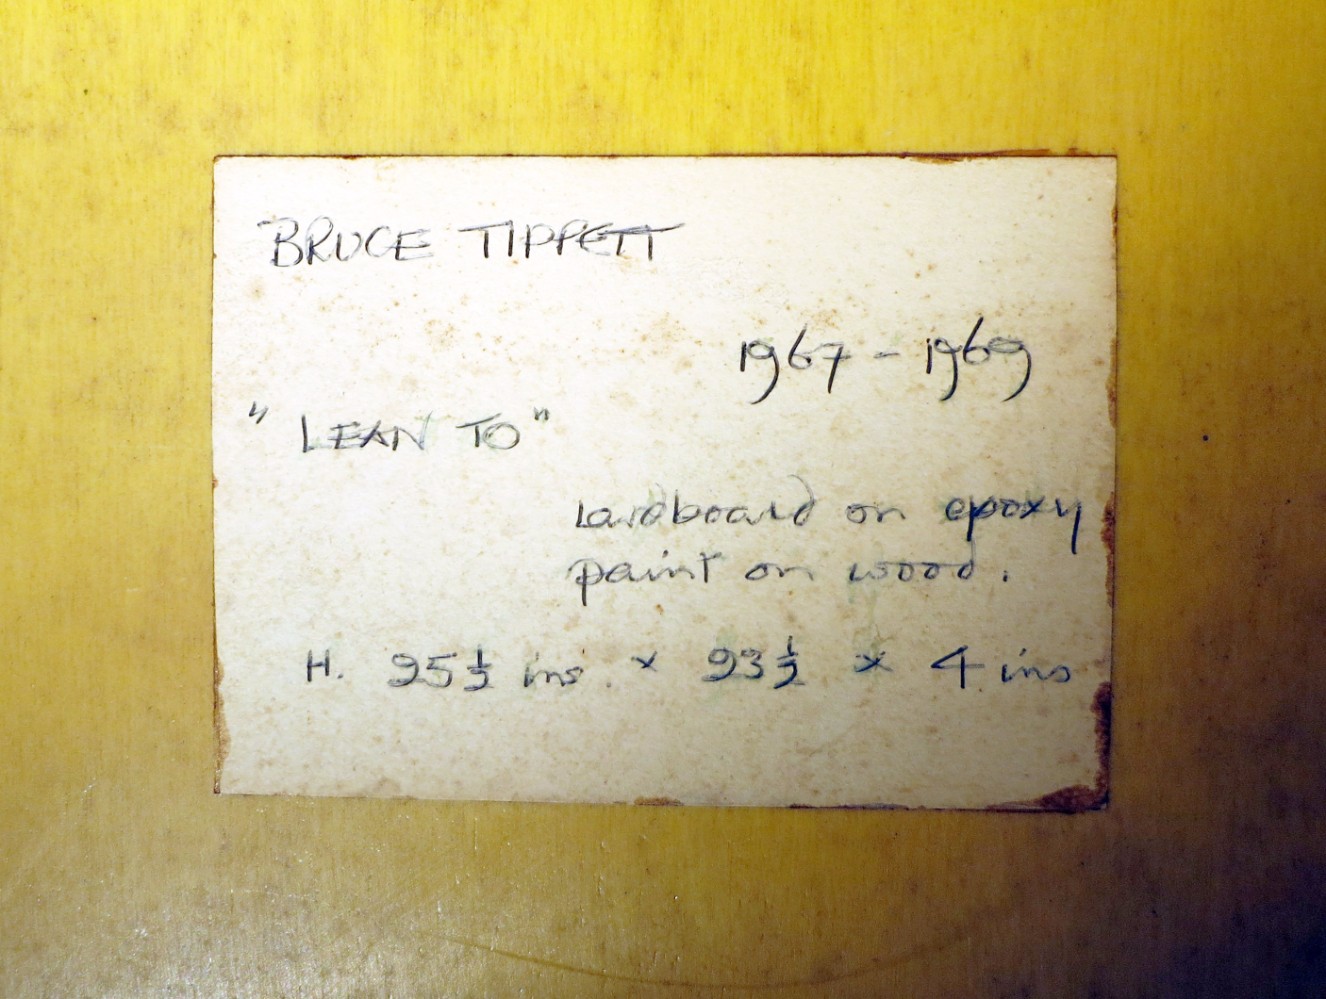 BRUCE TIPPETT
1967 - 1969
"LEAN TO"
cardboard on epoxy
paint on wood.
H. 95½ ins. × 93½ × 4 ins